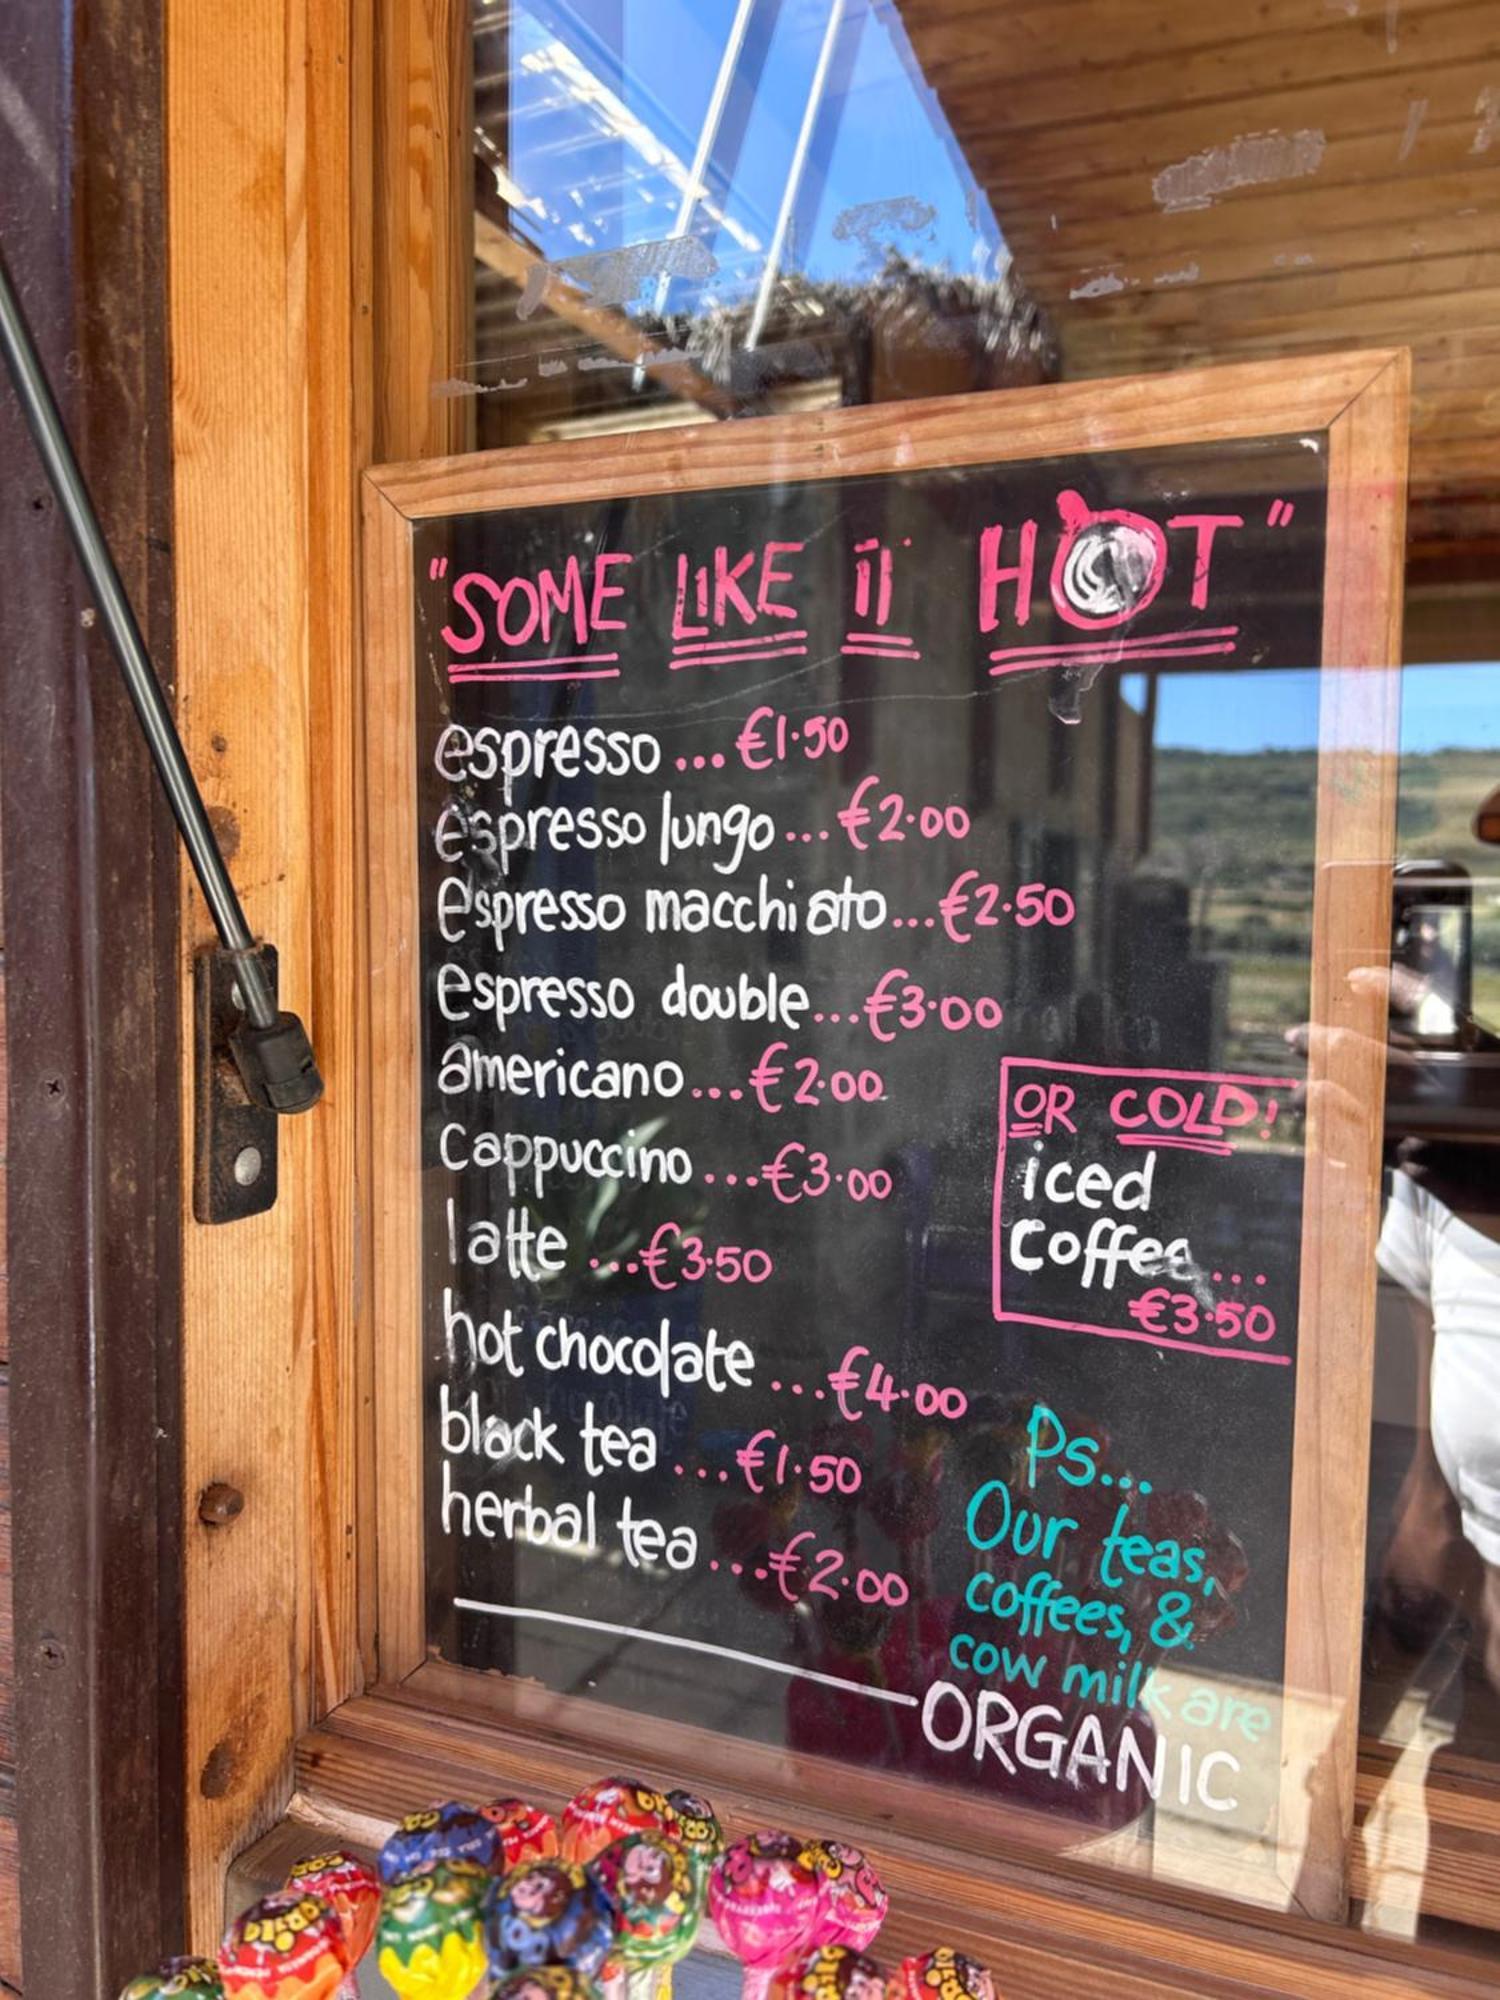 "SOME LIKE IT HOT"
espresso ... €1.50
espresso lungo ... €2.00
espresso macchiato ... €2.50
espresso double ... €3.00
americano ... €2.00
cappuccino ... €3.00
latte ... €3.50
hot chocolate ... €4.00
black tea ... €1.50
herbal tea ... €2.00
OR COLD!
iced
coffee ...
€3.50
Ps...
Our teas,
coffees, &
cow milk are
ORGANIC